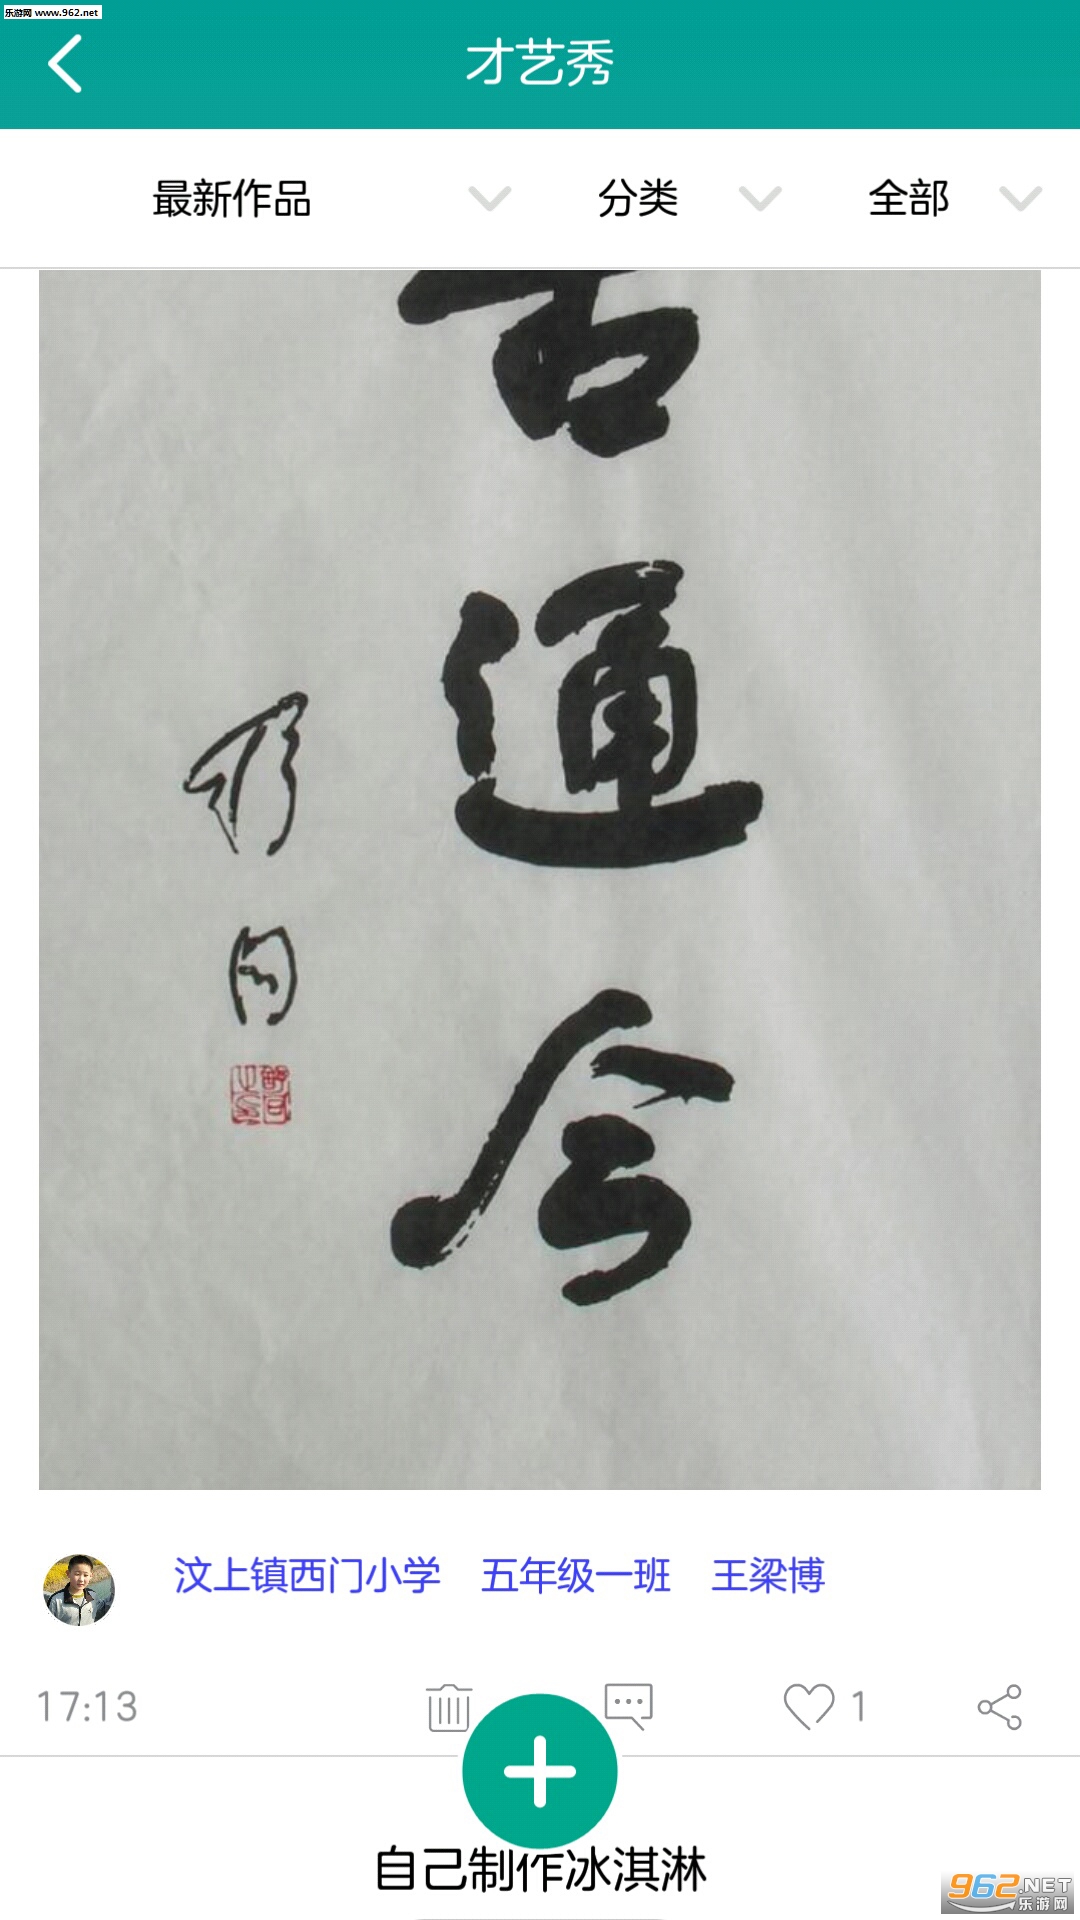 乐游网 www.962.net
才艺秀
最新作品 分类 全部
古
通
今
汶上镇西门小学 五年级一班 王梁博
17:13 1
自己制作冰淇淋
962.NET
乐游网